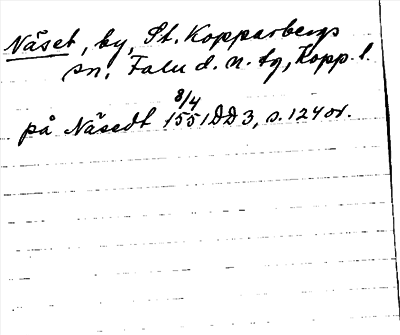 Näset, by, St. Kopparbergs
sn, Falu d. n. tg, Kopp. l.
8/4
på Näsedt 1551 DD 3, s. 124 or.